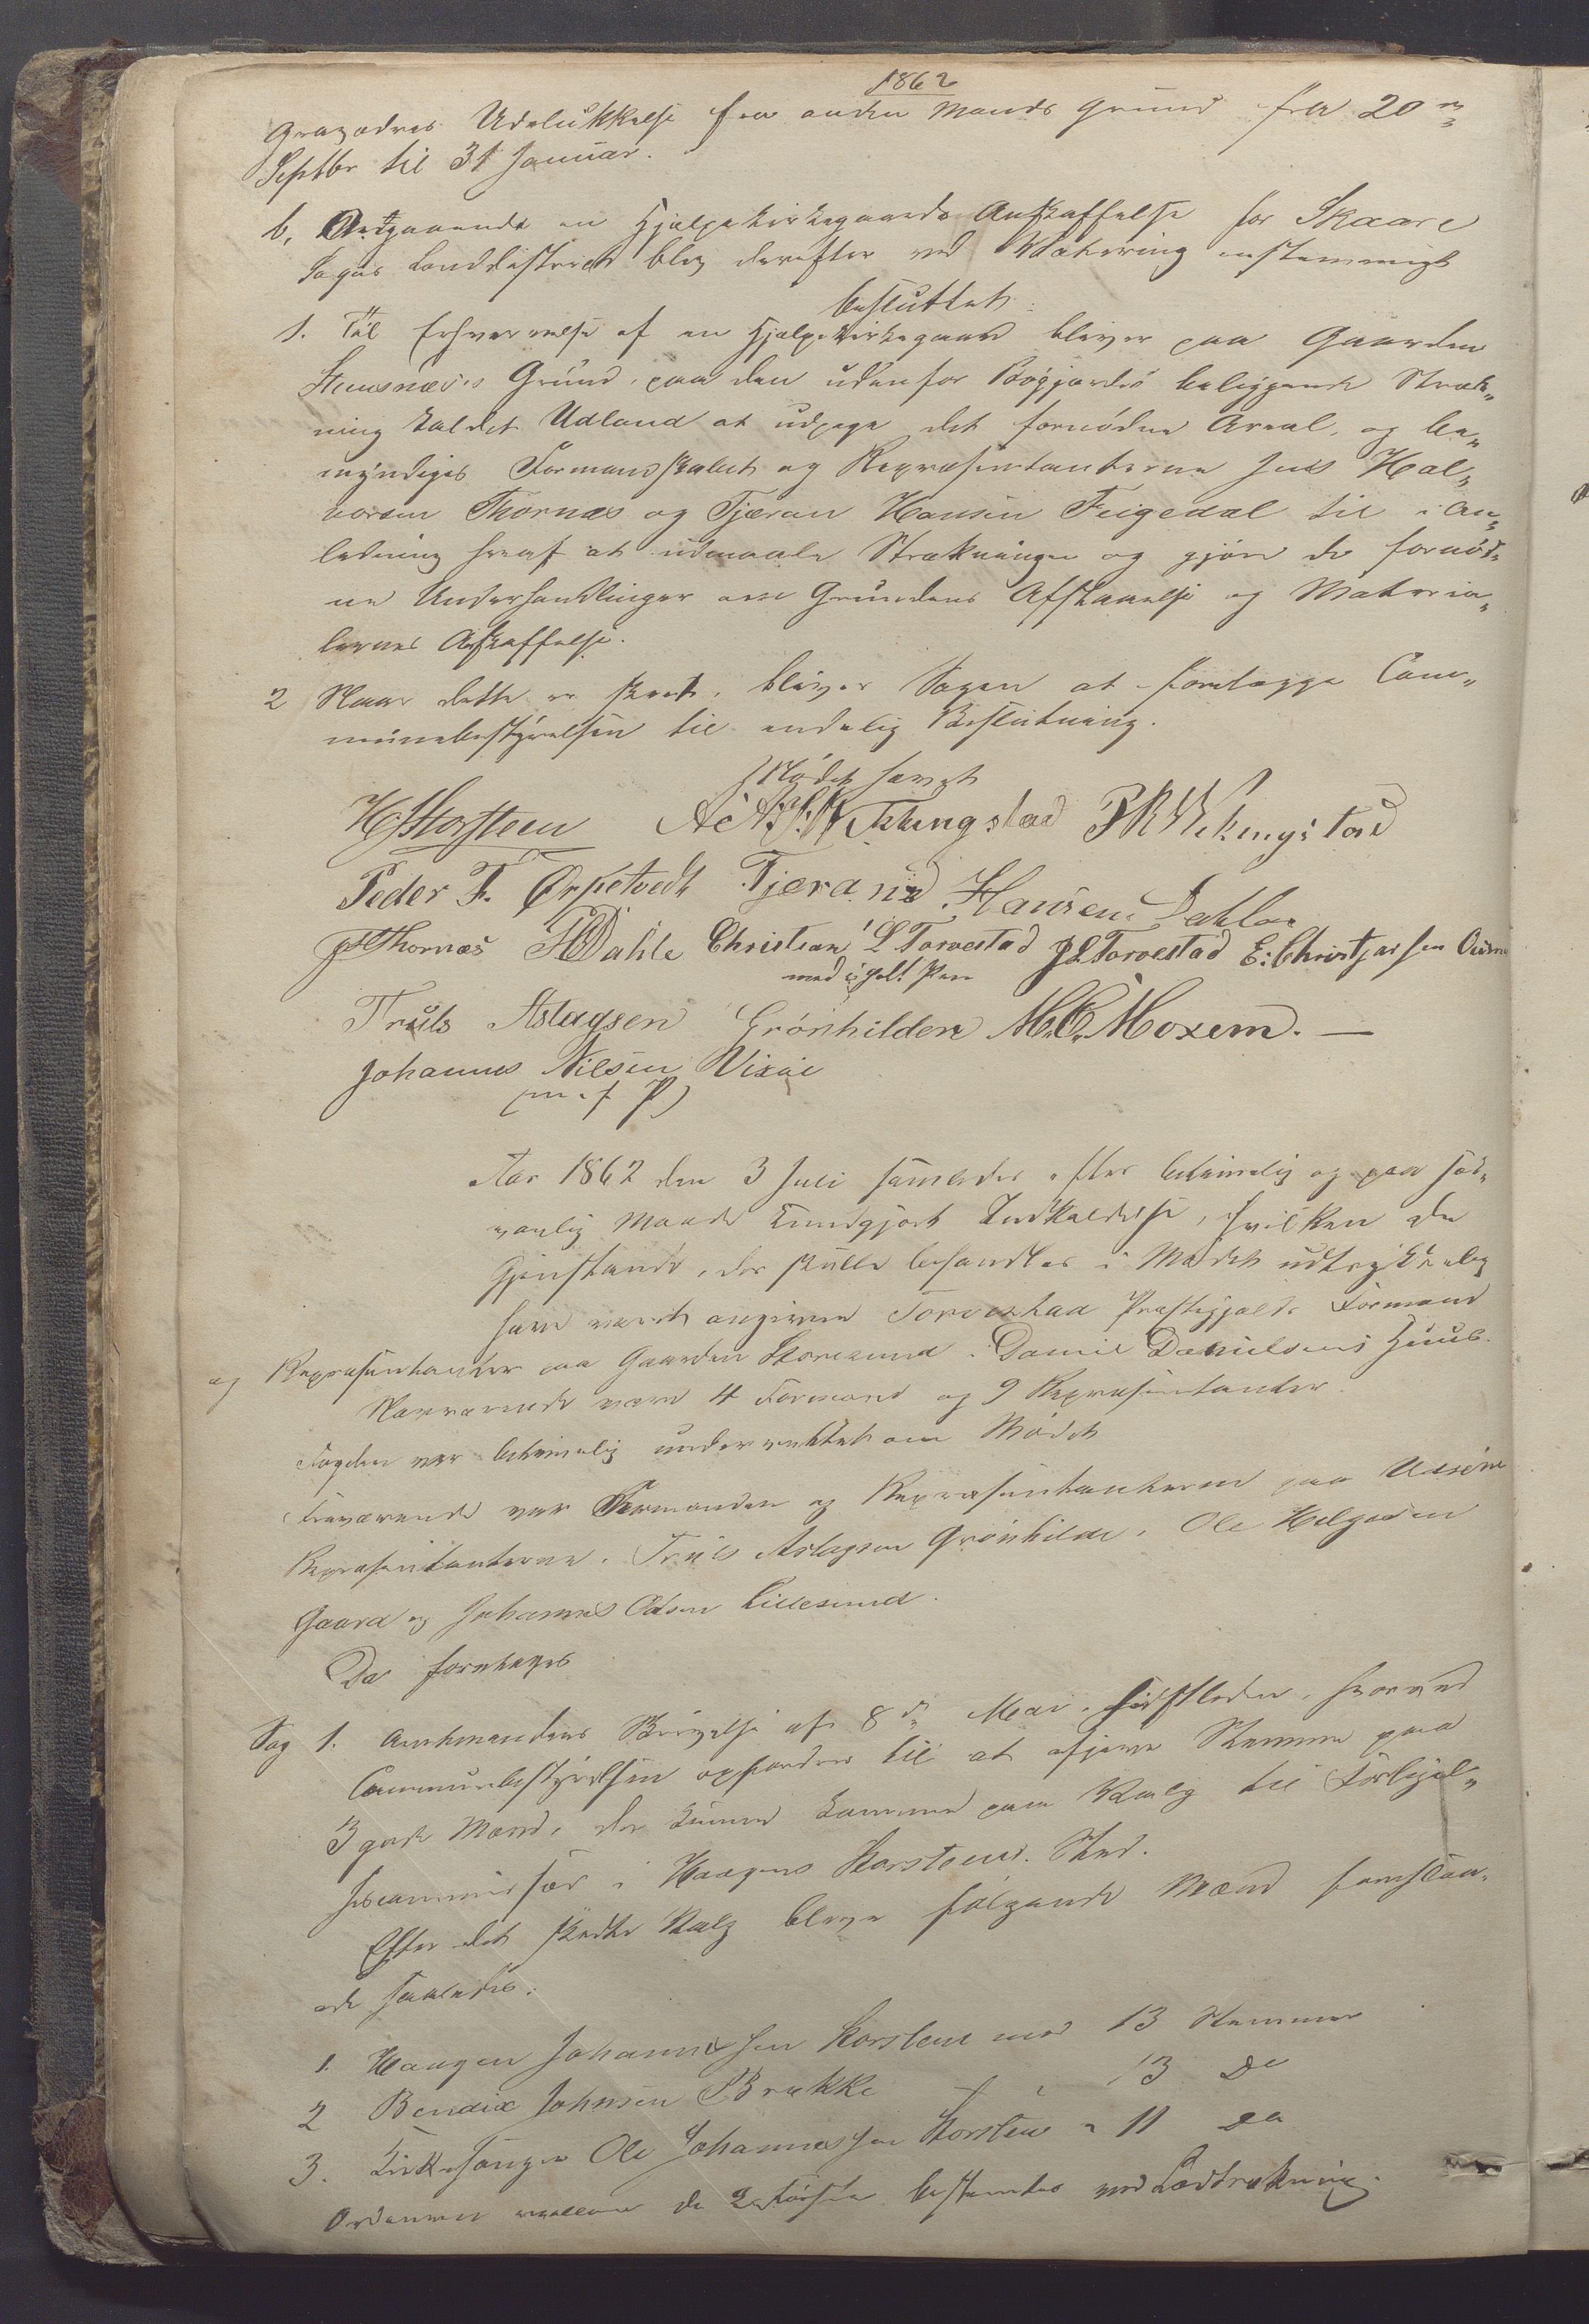 1862
Græsædres Udelukkelse fra anden Mands Grund fra 20de
Septbr til 31 Januar.
b, Angaaende en Hjælpekirkegaards Anskaffelse for Skaare
Sogns Landdistrict blev derefter ved Votering enstemmigt
besluttet:
1. Til Erhvervelse af en Hjælpekirkegaard bliver paa Gaarden
Steensnæs's Grund, paa den udenfor Bøgjærdet beliggende Stræk„
ning kaldet Udland at udpege det fornødne Areal, og be„
myndiges Formandskabet og Repræsentanterne Jens Hal„
vorsen Thornæs og Tjeran Hansen Feigedal til i An„
ledning heraf at udmaale Strækningen og gjøre de fornød„
ne Underhandlinger om Grundens Afstaaelse og Materia„
lernes Anskaffelse.
2 Naar dette er skeet, bliver Sagen at forelægge Com„
munebestyrelsen til endelig Beslutning.
Mødet hævet
H Storsteen Vikingstad P R Wikingstad
Peder T. Ørpetvedt Tjerand Hansen Dahl
J H Thornæs H Dahle Christian L Torvestad J L Torvestad E. Christjansen
med iholt Pen
Truls Aslagsen Grønhilder M. C. Moxem. —
Johannes Nilsen Visnæ
(m. f P)
Aar 1862 den 3 Juli samledes efter betimelig og paa sæd„
vanlig Maade kundgjort Indkaldelse, hvilken de
Gjenstande, der skulle behandles i Mødet udtrykkelig
have været angivne Torvestad Præstegjelds Formænd
og Repræsentanter paa Gaarden Storesund i Daniel Danielsens Huus.
Nærværende vare 4 Formænd og 9 Repræsentanter.
Fogden var betimelig underrettet om Mødet
Fraværende var Formanden og Repræsentanterne paa Udsire
Repræsentanterne, Truls Aslagsen Grønhilde, Ole Helgesen
Gaard og Johannes Olsen Lillesund.
Da foretages
Sag 1. Amtmandens Skrivelse af 8de Mai sidstleden, hvorved
Communebestyrelsen opfordres til at afgive Stemme paa
3 gode Mænd, der kunne komme paa Valg til Forligel„
sescommissær i Haagen Storsteens Sted.
Efter det skedte Valg bleve følgende Mænd foreslaa„
ede saaledes:
1. Haagen Johannessen Storsteen med 13 Stemmer
2 Bendix Johnsen Brække - " 13 Do
3. Kirkesanger Ole Johannessen Storsteen " 11 Do
Ordenen mellem de 2 første bestemtes ved Lodtrækning.